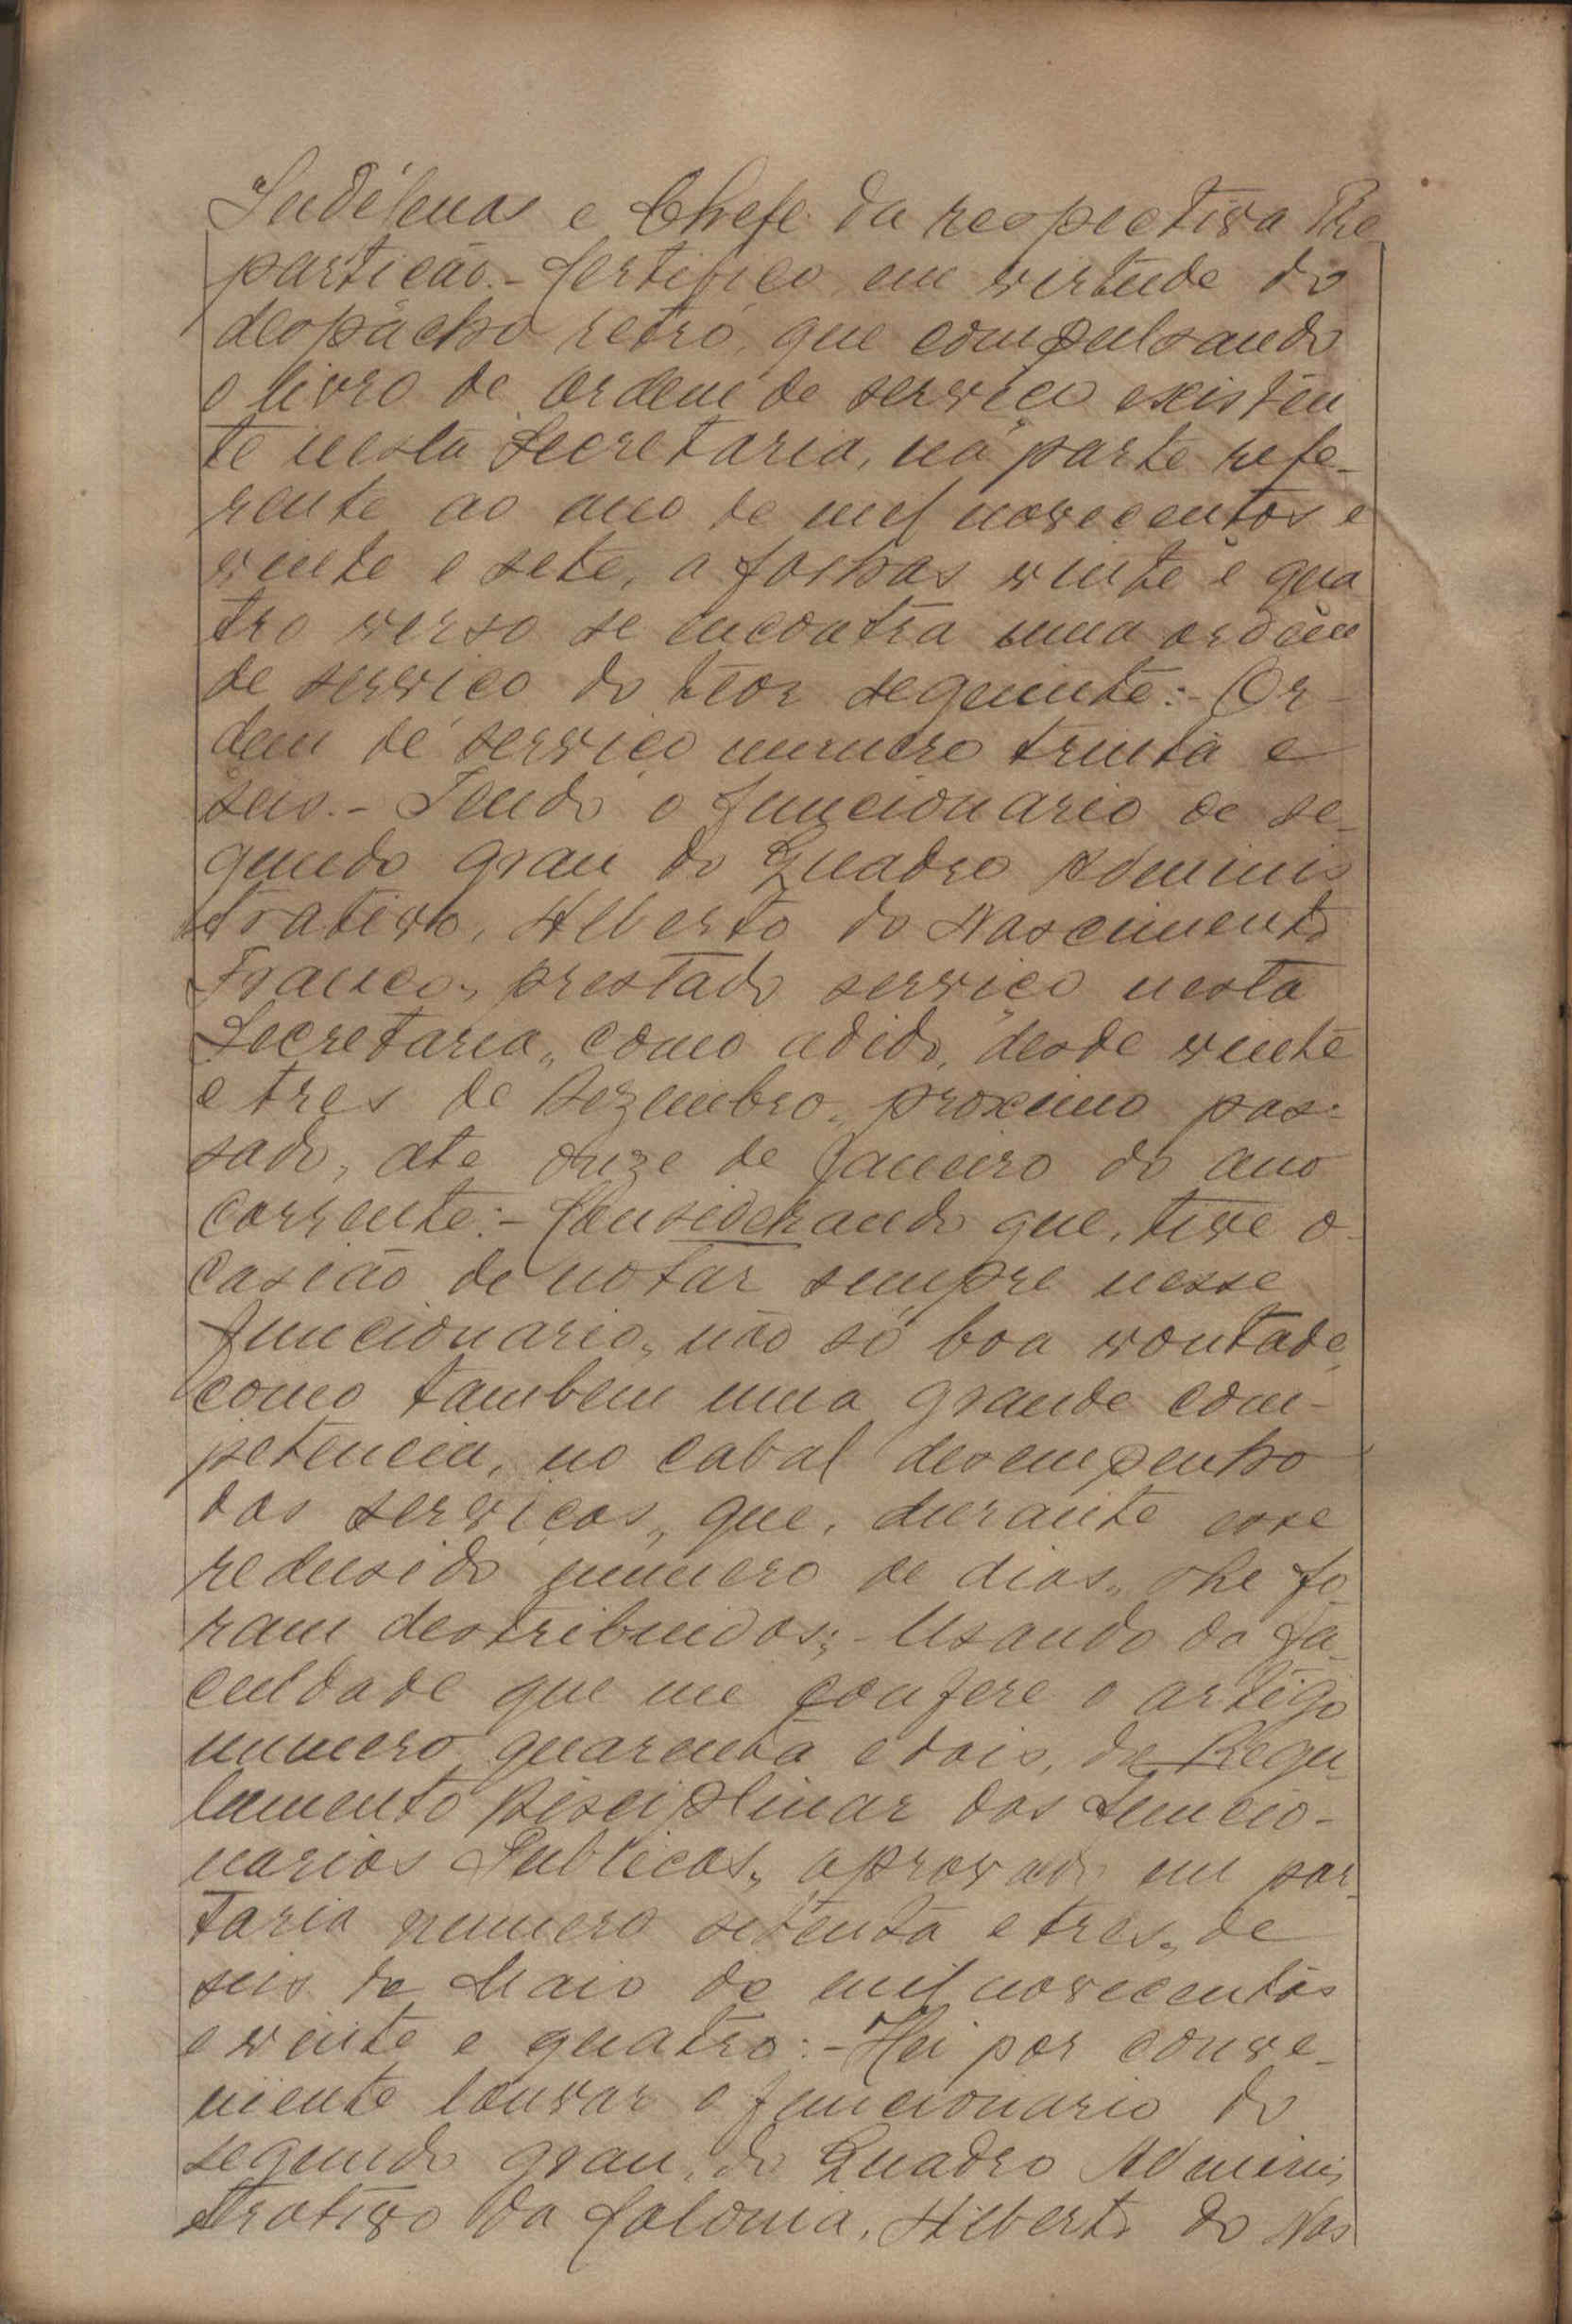 Indíjenas e Chefe da respectiva Re
partição.- Certifico em virtude do
despacho retró, que compulsando
o livro de ordem de serviço existen
te nesta Secretaria, na parte refe-
rente ao ano de mil novecentos e
vinte e sete, a folhas vinte e qua
tro verso se encontra uma ordem
de serviço do teor seguinte:- Or-
dem de serviço numero trinta e
seis.- Tendo o funcionario de se-
gundo grau do Quadro Adminis
trativo, Alberto do Nascimento
Franco, prestado serviço nesta
Secretaria, como adido, desde vinte
e tres de Dezembro, proximo pas-
sado, ate onze de Janeiro do ano
corrente:- Considerando que, tive o-
casião de notar sempre nesse
funcionario, não só boa vontade,
como tambem uma grande com-
petencia, no cabal desempenho
dos serviços, que, durante esse
redusido numero de dias, lhe fo
ram destribuidos;- Usando da fa-
culdade que me confere o artigo
numero quarenta e dois, do Regu-
lamento Disciplinar dos Funcio-
narios Publicos, aprovado em por-
taria numero setenta e tres, de
seis de Maio de mil novecentos
e vinte e quatro:- Hei por conve-
niente louvar o funcionario do
segundo grau, do Quadro Adminis
trativo da Colonia, Alberto do Nas